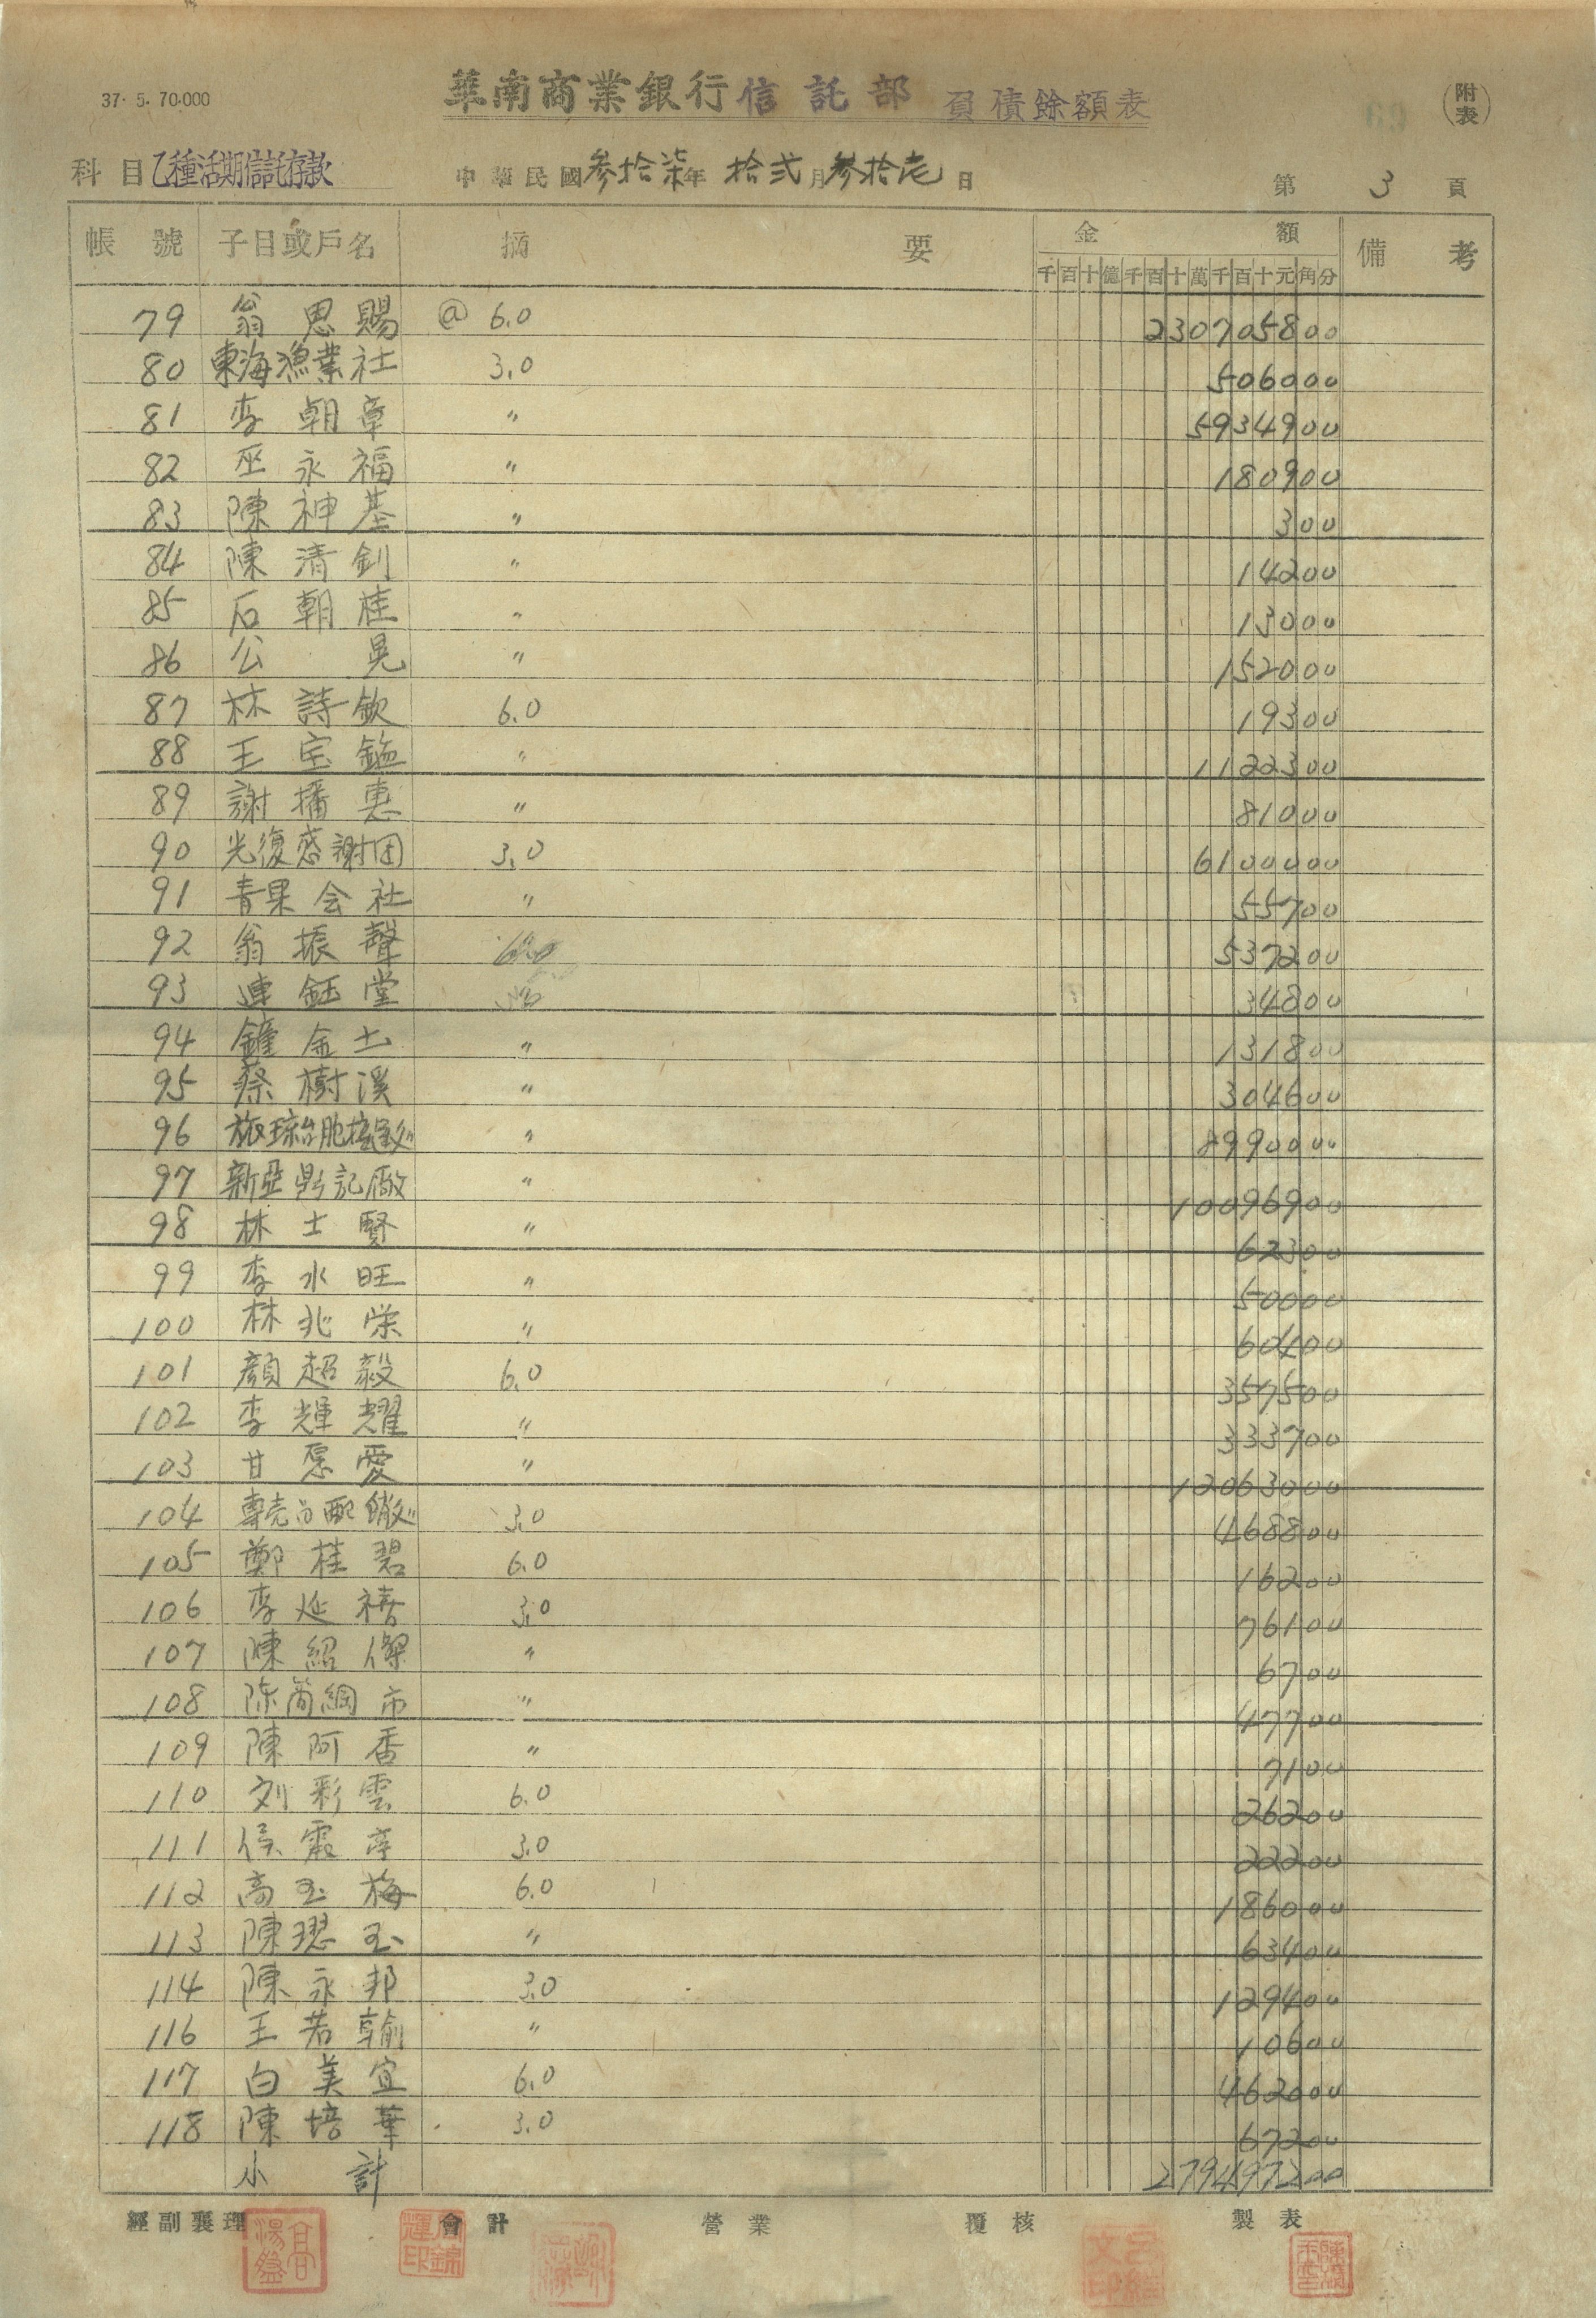 37. 5. 70.000
華南商業銀行信託部 負債餘額表
(附表)
科目 乙種活期信託存款 中華民國參拾柒年 拾弍月參拾壱日 第 3 頁
帳號 子目或戶名 摘要 金額 備考
千百十億千百十萬千百十元角分
79 翁思賜 @ 6.0 230705800
80 東海漁業社 3.0 506000
81 李朝章 〃 5934900
82 巫永福 〃 180900
83 陳神基 〃 300
84 陳清釗 〃 14200
85 石朝桂 〃 13000
86 公晃 〃 152000
87 林詩欽 6.0 19300
88 王宝鎰 〃 1122300
89 謝播惠 〃 81000
90 光復感謝団 3.0 6100000
91 青果会社 〃 55700
92 翁振聲 537200
93 連鈺堂 34800
94 鐘金土 〃 131800
95 蔡樹溪 〃 304600
96 旅琼台胞 〃 8990000
97 新亞鼎記廠 〃 10096900
98 林士賢 〃 62300
99 李水旺 〃 50000
100 林兆栄 〃 60400
101 顏超毅 6.0 357500
102 李輝耀 〃 333700
103 甘愿愛 〃 12063000
104 專売台配銷 3.0 468800
105 鄭桂碧 6.0 16200
106 李延禧 3.0 76100
107 陳紹傑 〃 6700
108 陈简綢市 〃 47700
109 陳阿香 〃 7100
110 刘彩雲 6.0 26200
111 侯霞亭 3.0 22200
112 高玉梅 6.0 186000
113 陳瑟玉 〃 63400
114 陳永邦 3.0 129400
116 王若翰 〃 10600
117 白美宜 6.0 462000
118 陳培華 3.0 67200
小計 279497200
經副襄理 會計 營業 覆核 製表